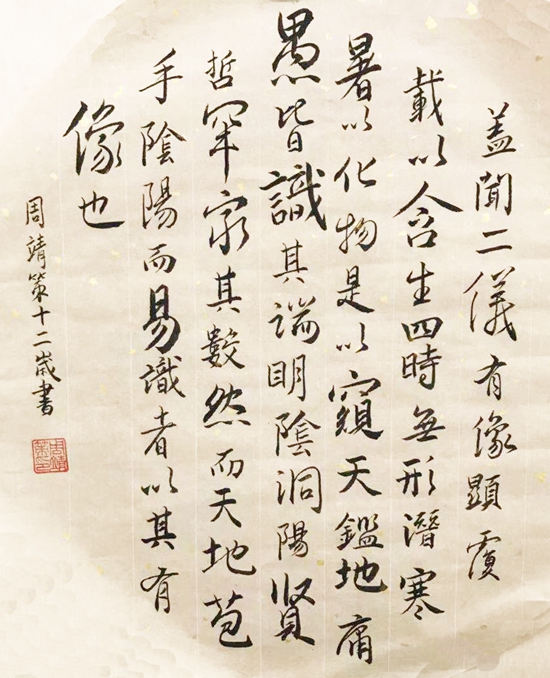 盖聞二儀有像顯覆
載以含生四時無形潛寒
暑以化物是以窺天鑑地庸
愚皆識其端明陰洞陽賢
哲罕窮其數然而天地苞
手陰陽而易識者以其有
像也
周靖策十二歲書